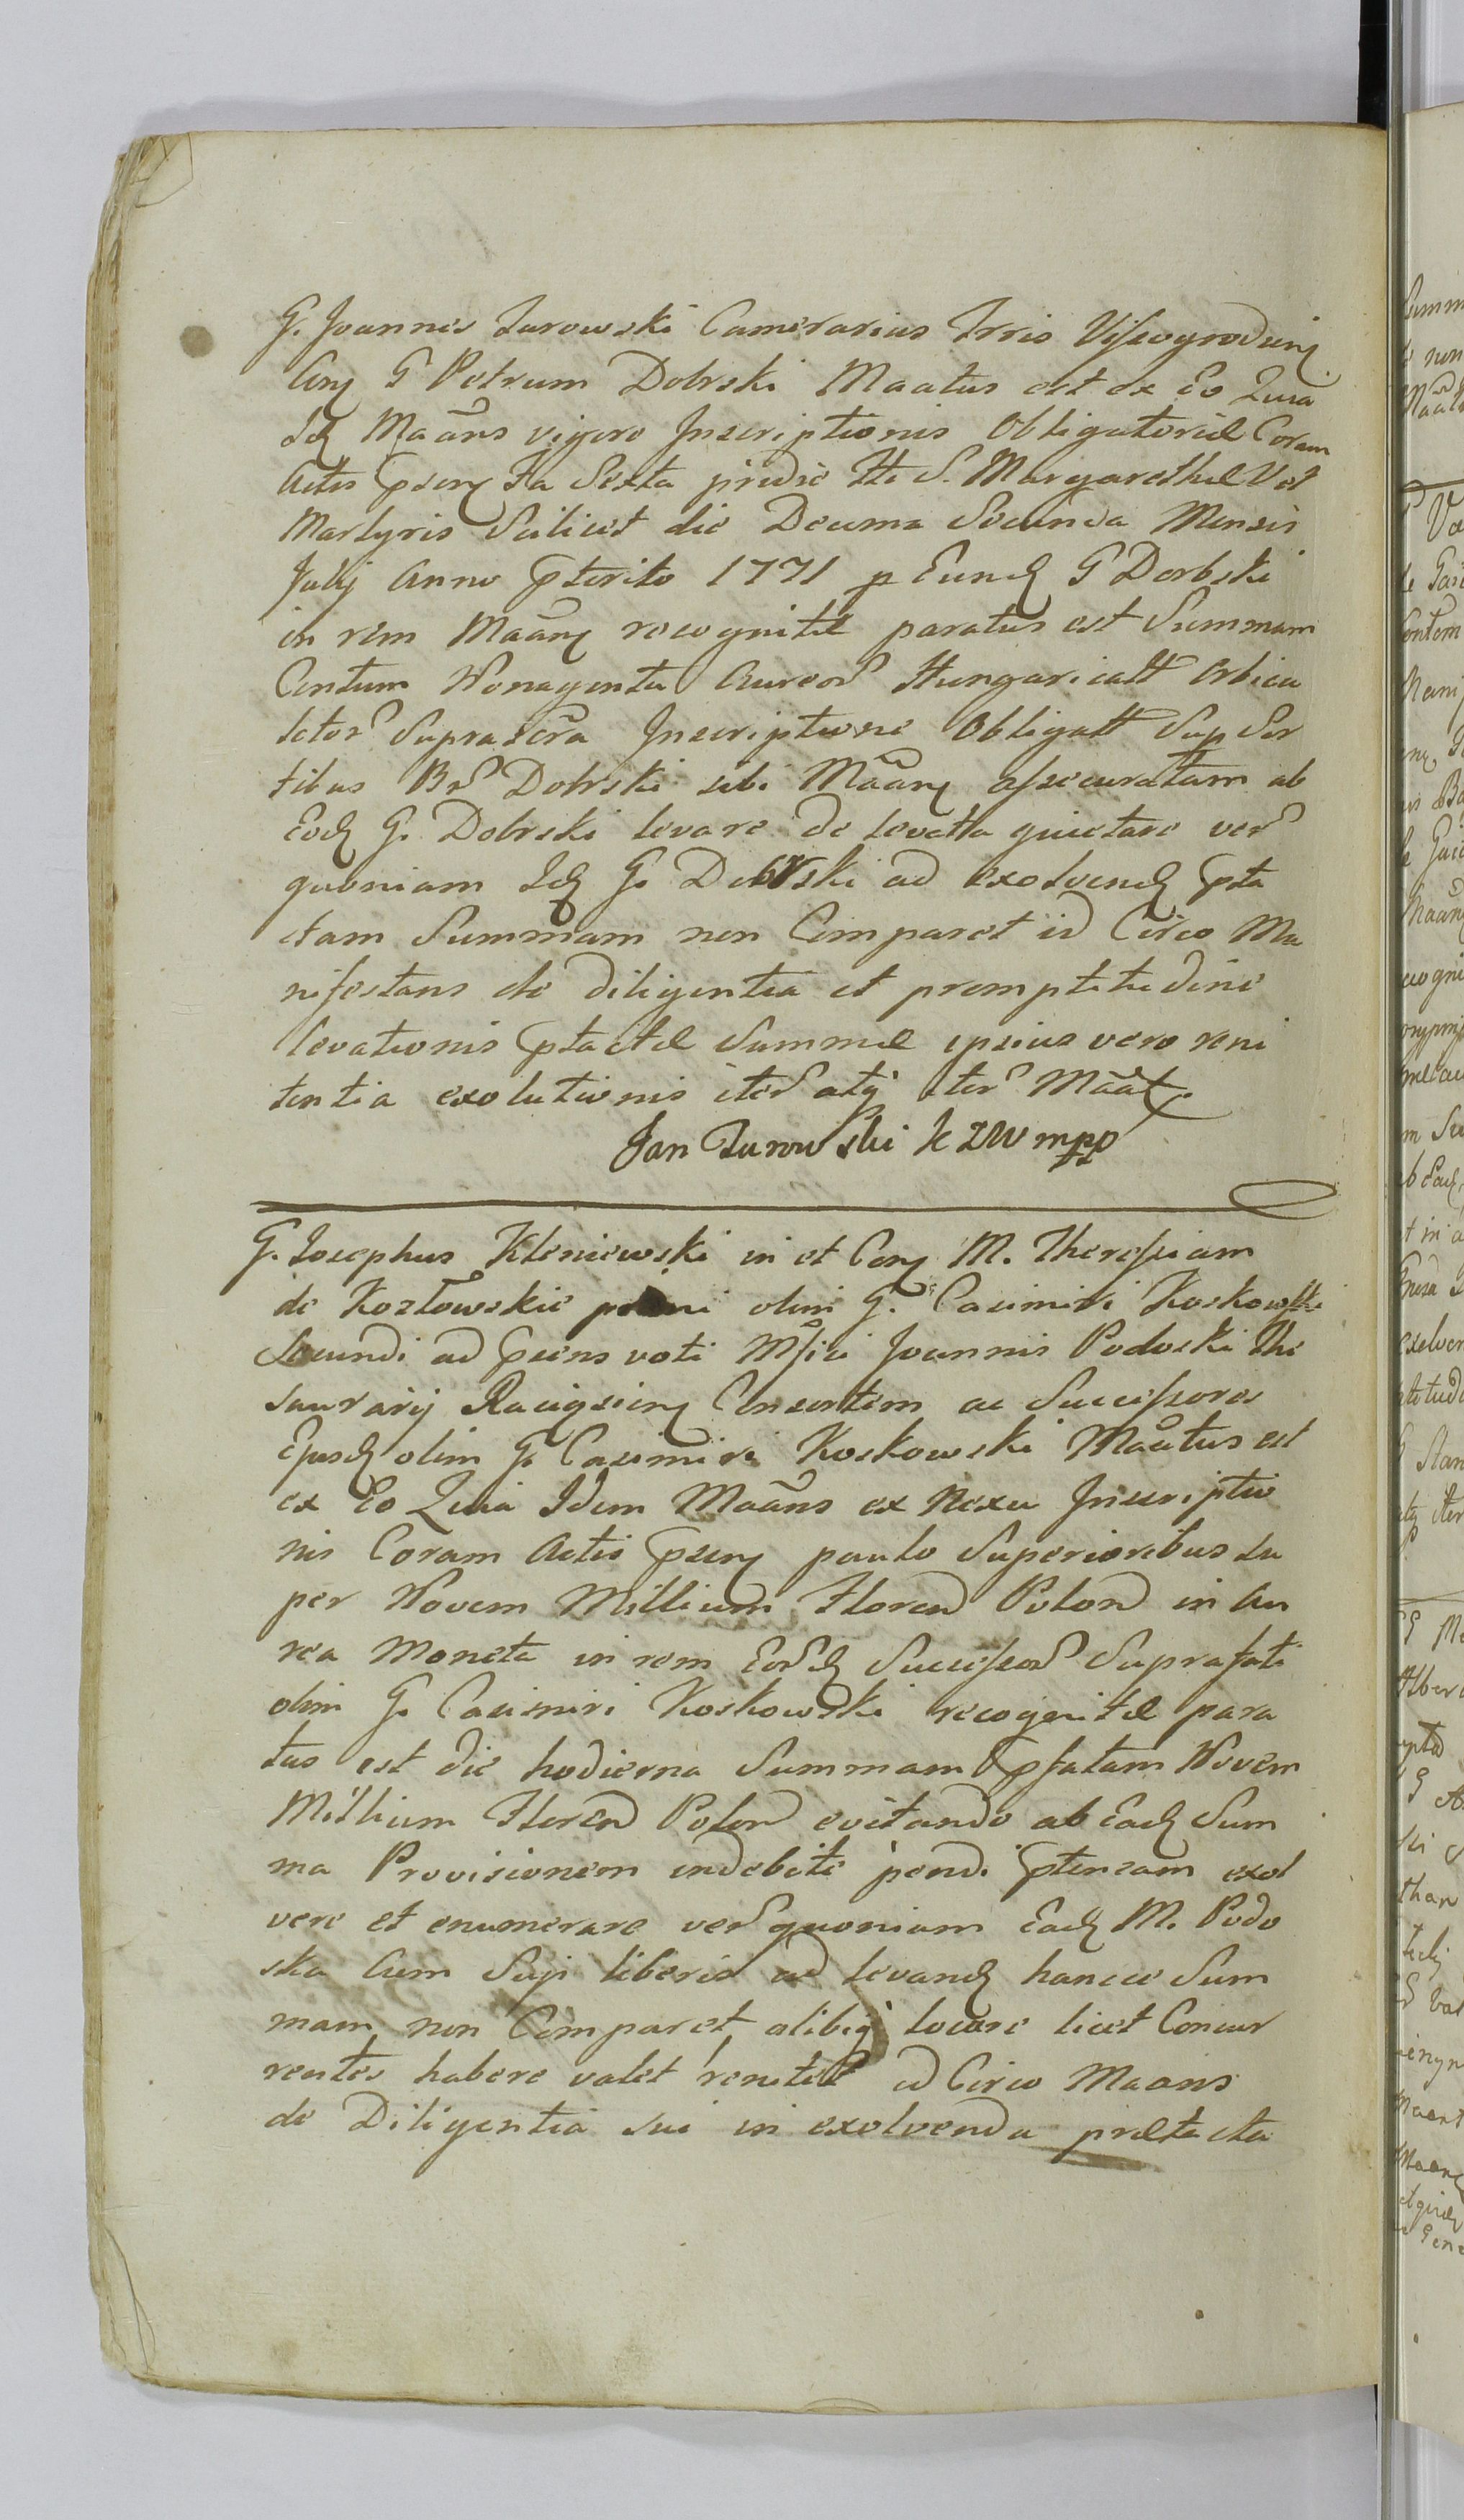 G. Joannes Zurowski Camerarius Trris Visogrodien
Con G Petrum Dobrski Maatus est ex Eo Quia
Id Maans vigore Inscriptionis Obligatoriæ Coram
Actis Fa Sexta pridie Sti S. Margarethæ V et
Martyris Scilicet die Decima Secunda Mensis
Julij Anno pterito 1771 p Eund G Dorbski
in rem Maan recognitæ paratus est Summam
Centum Nonaginta Aureor Hungaricalt Orbicu
lator Suprascra Inscriptione Obligatt Sup Sor
tibus Br Dobrski sibi Maan assecuratam ab
Eod G. Dobrski levare de levatta quietare ver
quoniam Id G. Dobrski ad exolvend pta
ctam Summam non Comparet id Circo Ma
nifestans de diligentia et promptitudine
levationis ptactæ Summæ ipsius vero reni
tentia exolutionis iter atq iter Maat.
Jan Zurowski k Z W mpp
G. Josephus Kleniewski in et Con M. Theressiam
de Kozłowskie primi olim G. Casimiri Koskowski
Secundi ad psens voti Mfici Joannis Podoski The
saurarij Raciqzien Consortem ac Successores
Ejusd olim G. Casimiri Koskowski Maatus est
ex Eo Quia Idem Maans ex Nexu Inscriptio
nis Coram Actis psen paulo Superioribus su
per Novem Millium Floren Polon in Au
rea Moneta in rem Eord Successor Suprafati
olim G. Casimiri Koskowski recognitæ para
tus est die hodierna Summam pfatam Novem
Millium Floren Polon evitando ab Ead Sum
ma Provisionem indebite pendi ptensam exol
vere et enumerare ver quoniam Ead M. Podo
ska Cum Suis liberis ad levand hancce Sum
mam non Comparet alibiq locare licet Concur
rentes habere valet renitet id Circo Maans
de Diligentia sui in exolvenda prætacta